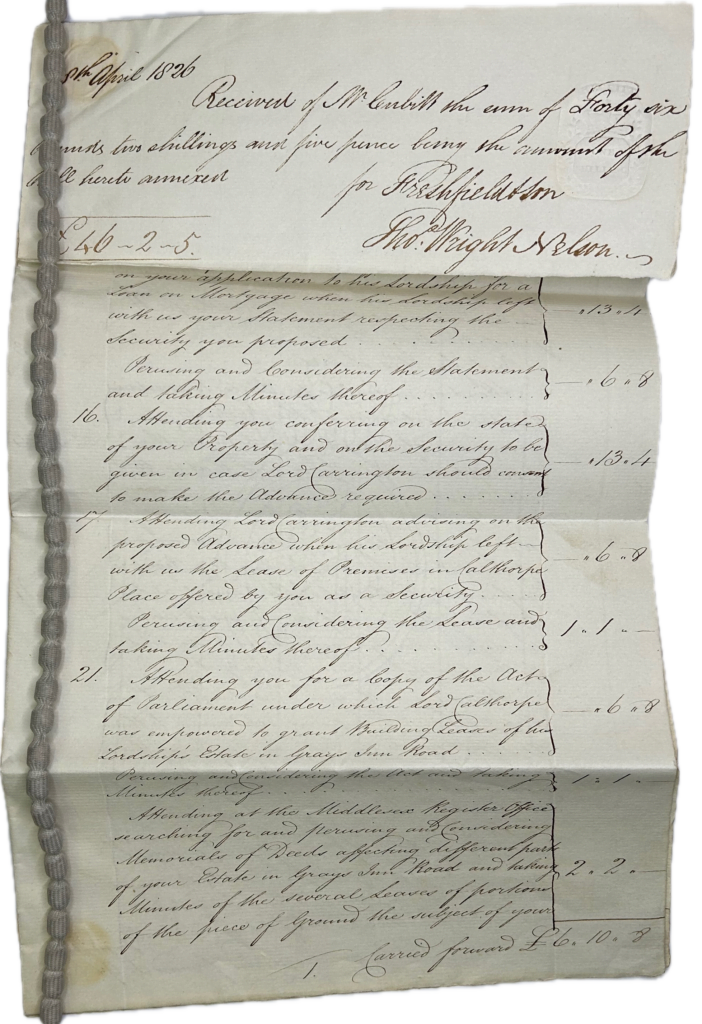 8th April 1826
Received of Mr Cubitt the sum of Forty six
pounds two shillings and five pence being the amount of the
bill hereto annexed
for Freshfield & Son
£46 - 2 - 5.
Thos. Wright Nelson.
on your application to his Lordship for a
Loan on Mortgage when his Lordship left
with us your Statement respecting the
Security you proposed . . . . . . . . " 13 " 4
Perusing and Considering the Statement
and taking Minutes thereof . . . . . " 6 " 8
16. Attending you conferring on the state
of your Property and on the Security to be
given in case Lord Carrington should consent
to make the Advance required . . . . . . " 13 " 4
17. Attending Lord Carrington advising on the
proposed Advance when his Lordship left
with us the Lease of Premises in Calthorpe
Place offered by you as a Security . . " 6 " 8
Perusing and Considering the Lease and
taking Minutes thereof . . . . . . . . 1 " 1 " —
21. Attending you for a Copy of the Act
of Parliament under which Lord Calthorpe
was empowered to grant Building Leases of his
Lordship's Estate in Grays Inn Road . . . . . . " 6 " 8
Perusing and Considering the Act and taking
Minutes thereof . . . . . . . . 1 " 1 " —
Attending at the Middlesex Register Office
searching for and perusing and Considering
Memorials of Deeds affecting different parts
of your Estate in Grays Inn Road and taking
Minutes of the several Leases of portions
of the piece of Ground the subject of your
2 " 2 " —
Carried forward £6 " 10 " 8
1.